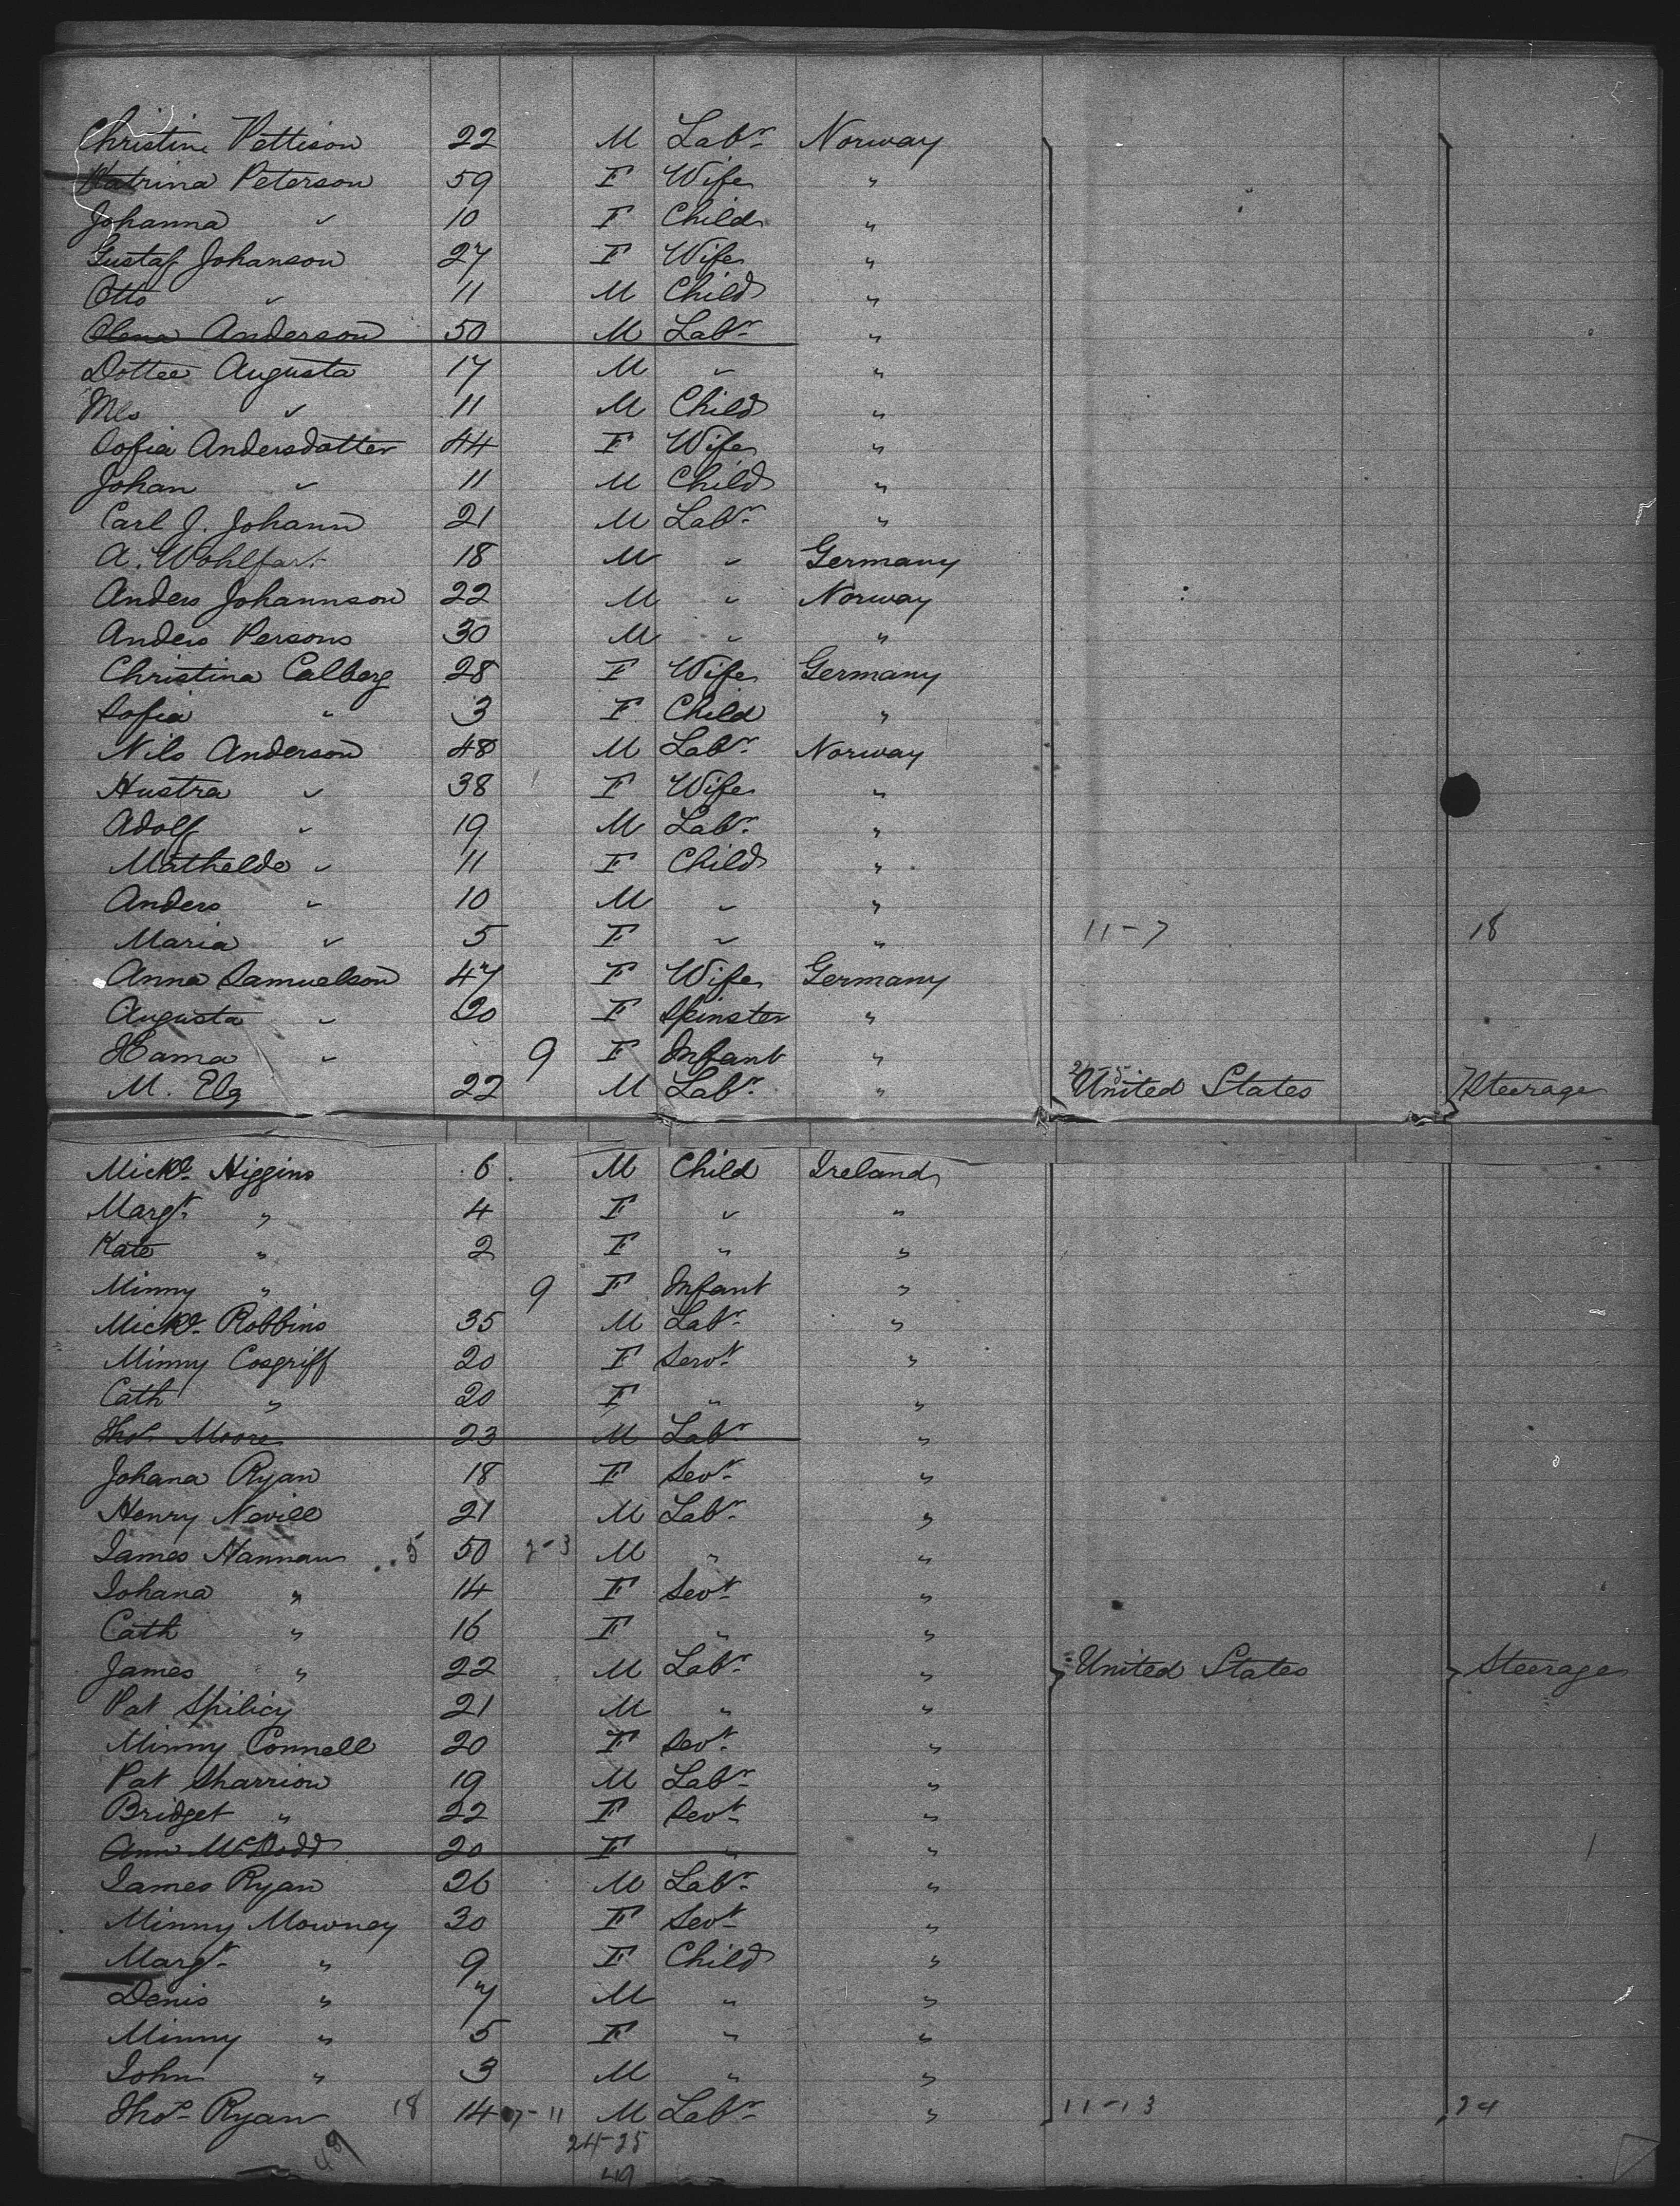 Christine Pettison 22 M Labr. Norway
Katrina Peterson 59 F Wife "
Johanna " 10 F Child "
Gustaf Johanson 27 F Wife "
Otto " 11 M Child "
Olena Anderson 50 M Labr. "
Dottee Augusta 17 M " "
Mls " 11 M Child "
Sofia Andersdatter 44 F Wife "
Johan " 11 M Child "
Carl J. Johann 21 M Labr. "
A. Wohlfart 18 M " Germany
Anders Johannson 22 M " Norway
Anders Persons 30 M " "
Christina Calberg 28 F Wife Germany
Sofia " 3 F Child "
Nils Anderson 48 M Labr. Norway
Hustra " 38 F Wife "
Adolf " 19 M Labr. "
Mathelde " 11 F Child "
Anders " 10 M " "
Maria " 5 F " " 11-7 18
Anna Samuelson 47 F Wife Germany
Augusta " 20 F Spinster "
Hama " 9 F Infant "
M. Elg 22 M Labr. " United States Steerage
Michl. Higgins 6 M Child Ireland
Margt. " 4 F " "
Kate " 2 F " "
Minny " 9 F Infant "
Michl. Robbins 35 M Labr. "
Minny Cosgriff 20 F Servt. "
Cath " 20 F " "
Thos. Moore 23 M Labr. "
Johana Ryan 18 F Sevt. "
Henry Nevill 21 M Labr. "
James Hannan 5 50 2-3 M " "
Johana " 14 F Sevt. "
Cath " 16 F " "
James " 22 M Labr. " United States Steerage
Pat Spilicy 21 M " "
Minny Connell 20 F Sevt. "
Pat Sharrion 19 M Labr. "
Bridget " 22 F Sevt. "
Ann McDodd 20 F " "
James Ryan 26 M Labr. "
Minny Mowney 30 F Sevt. "
Margt. " 9 F Child "
Denis " 7 M " "
Minny " 5 F " "
John " 3 M " "
Thos. Ryan 18 14 7-11 M Labr. " 11-13 24
49 24-25
49